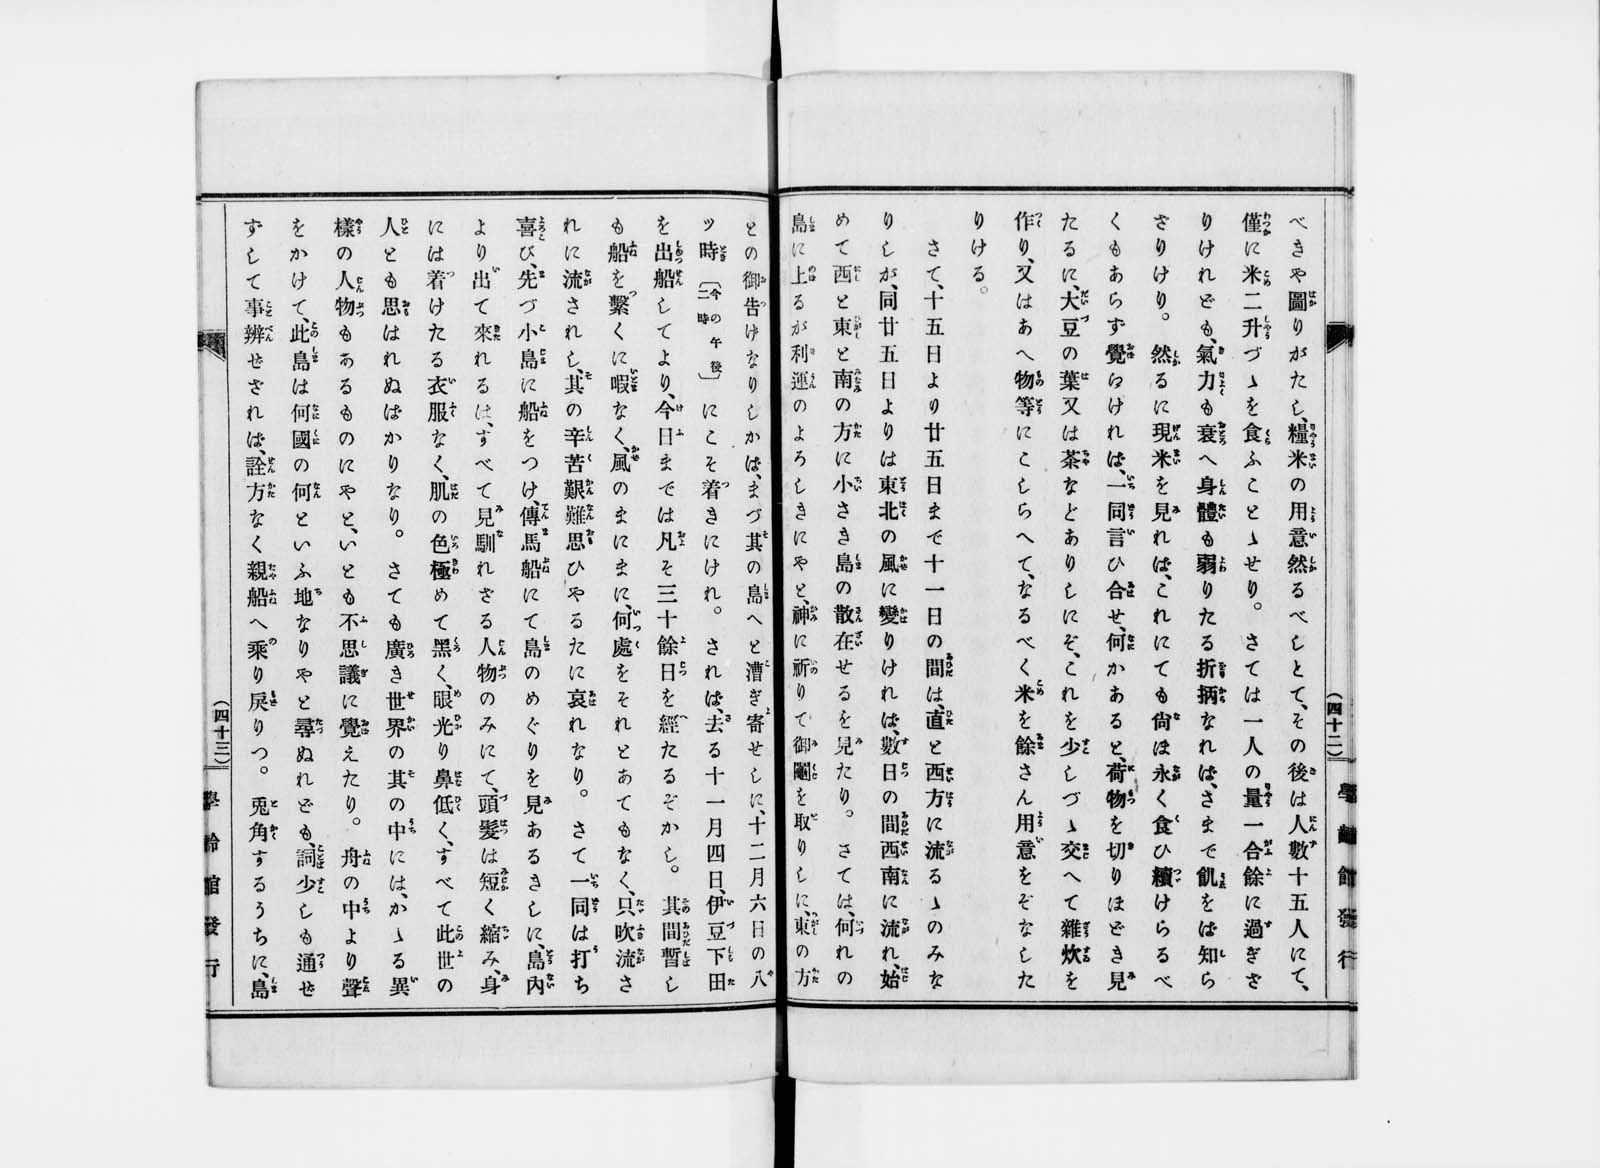 べきや圖りがたし、糧米の用意然るべしとて、その後は人數十五人にて、
僅に米二升づゝを食ふことゝせり。さては一人の量一合餘に過ぎざ
りけれども、氣力も衰へ身體も弱りたる折柄なれば、さまで飢をば知ら
ざりけり。然るに現米を見れば、これにても尙ほ永く食ひ續けらるべ
くもあらず覺ゆければ、一同言ひ合せ、何かあると、荷物を切りほどき見
たるに、大豆の葉又は茶などありしにぞ、これを少しづゝ交へて雜炊を
作り、又はあへ物等にこしらへて、なるべく米を餘さん用意をぞなした
りける。
さて、十五日より廿五日まで十一日の間は、直と西方に流るゝのみな
りしが、同廿五日よりは東北の風に變りければ、數日の間西南に流れ、始
めて西と東と南の方に小さき島の散在せるを見たり。さては、何れの
島に上るが利運のよろしきにやと、神に祈りて御鬮を取りしに、東の方
との御告げなりしかば、まづ其の島へと漕ぎ寄せしに、十二月六日の八
ッ時〔今の午後二時〕にこそ着きにけれ。されば、去る十一月四日、伊豆下田
を出船してより、今日までは凡そ三十餘日を經たるぞかし。其間暫し
も船を繫ぐに暇なく、風のまにまに、何處をそれとあてもなく、只吹流さ
れに流されし、其の辛苦艱難思ひやるたに哀れなり。さて一同は打ち
喜び、先づ小島に船をつけ、傳馬船にて島のめぐりを見あるきしに、島內
より出て來れるは、すべて見馴れざる人物のみにて、頭髮は短く縮み、身
には着けたる衣服なく、肌の色極めて黑く、眼光り鼻低く、すべて此世の
人とも思はれぬばかりなり。さても廣き世界の其の中には、かゝる異
樣の人物もあるものにやと、いとも不思議に覺えたり。舟の中より聲
をかけて、此島は何國の何といふ地なりやと尋ぬれども、詞少しも通ぜ
ずして事辨ぜざれば、詮方なく親船へ乘り戾りつ。兎角するうちに、島
（四十二）
學齡館發行
（四十三）
學齡館發行